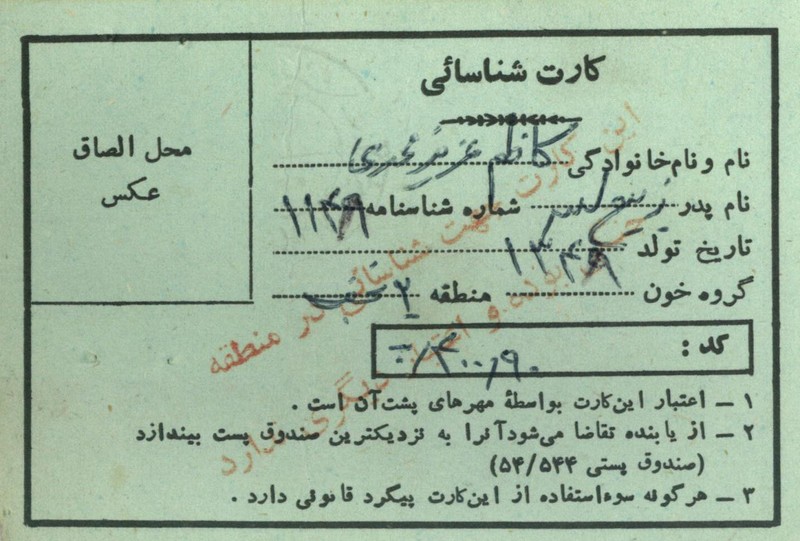 کارت شناسائی
محل الصاق
عکس
نام و نام‌خانوادگی کاظم عزیزمحمدی
نام پدر شماره شناسنامه ۱۱۴۹
تاریخ تولد ۱۳۴۹
گروه خون منطقه ۲
کد :
۱ ـ اعتبار این‌کارت بواسطهٔ مهرهای پشت‌آن است .
۲ ـ از یابنده تقاضا می‌شودآنرا به نزدیکترین صندوق پست بیندازد
(صندوق پستی ۵۴/۵۴۴)
۳ ـ هرگونه سوءاستفاده از این‌کارت پیگرد قانونی دارد .
این کارت جهت شناسائی در منطقه
بوده و دیگری ندارد